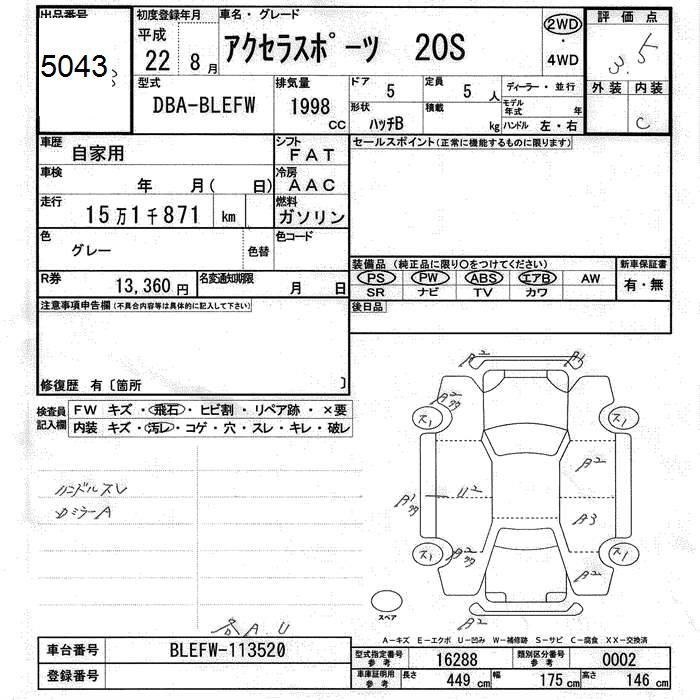 出品番号
5043
初度登録年月
平成
22 8 月
車名・グレード
アクセラスポーツ 20S
2WD
・
4WD
評価点
3.5
外装 内装
C
型式
DBA-BLEFW
排気量
1998
CC
ドア
5
定員
5 人
ディーラー・並行
形状
ハッチB
積載
kg
モデル年式 年
ハンドル 左・右
車歴
自家用
シフト
FAT
セールスポイント(正常に機能するものに限ります)
車検
年 月( 日)
冷房
AAC
走行
15万1千871 km
燃料
ガソリン
色
グレー
色替
色コード
装備品 (純正品に限り○をつけてください)
新車保証書
PS PW ABS エアB AW
有・無
SR ナビ TV カワ
R券
13,360円
名変通知期限
月 日
後日品
注意事項申告欄(不具合内容等は具体的に記入して下さい)
修復歴 有〔箇所 〕
検査員
記入欄
FW キズ・飛石・ヒビ割・リペア跡・×要
内装 キズ・汚レ・コゲ・穴・スレ・キレ・破レ
ハンドルスレ
ミラーA
A2
ス1
ス1
A2
U2
A3
ス1
ス1
A2
A2
スペア
A.U
A-キズ E-エクボ U-凹み W-補修跡 S-サビ C-腐食 XX-交換済
車台番号
BLEFW-113520
登録番号
型式指定番号
参考
16288
類別区分番号
参考
0002
車庫証明用
参考
長さ
449 cm
幅
175 cm
高さ
146 cm